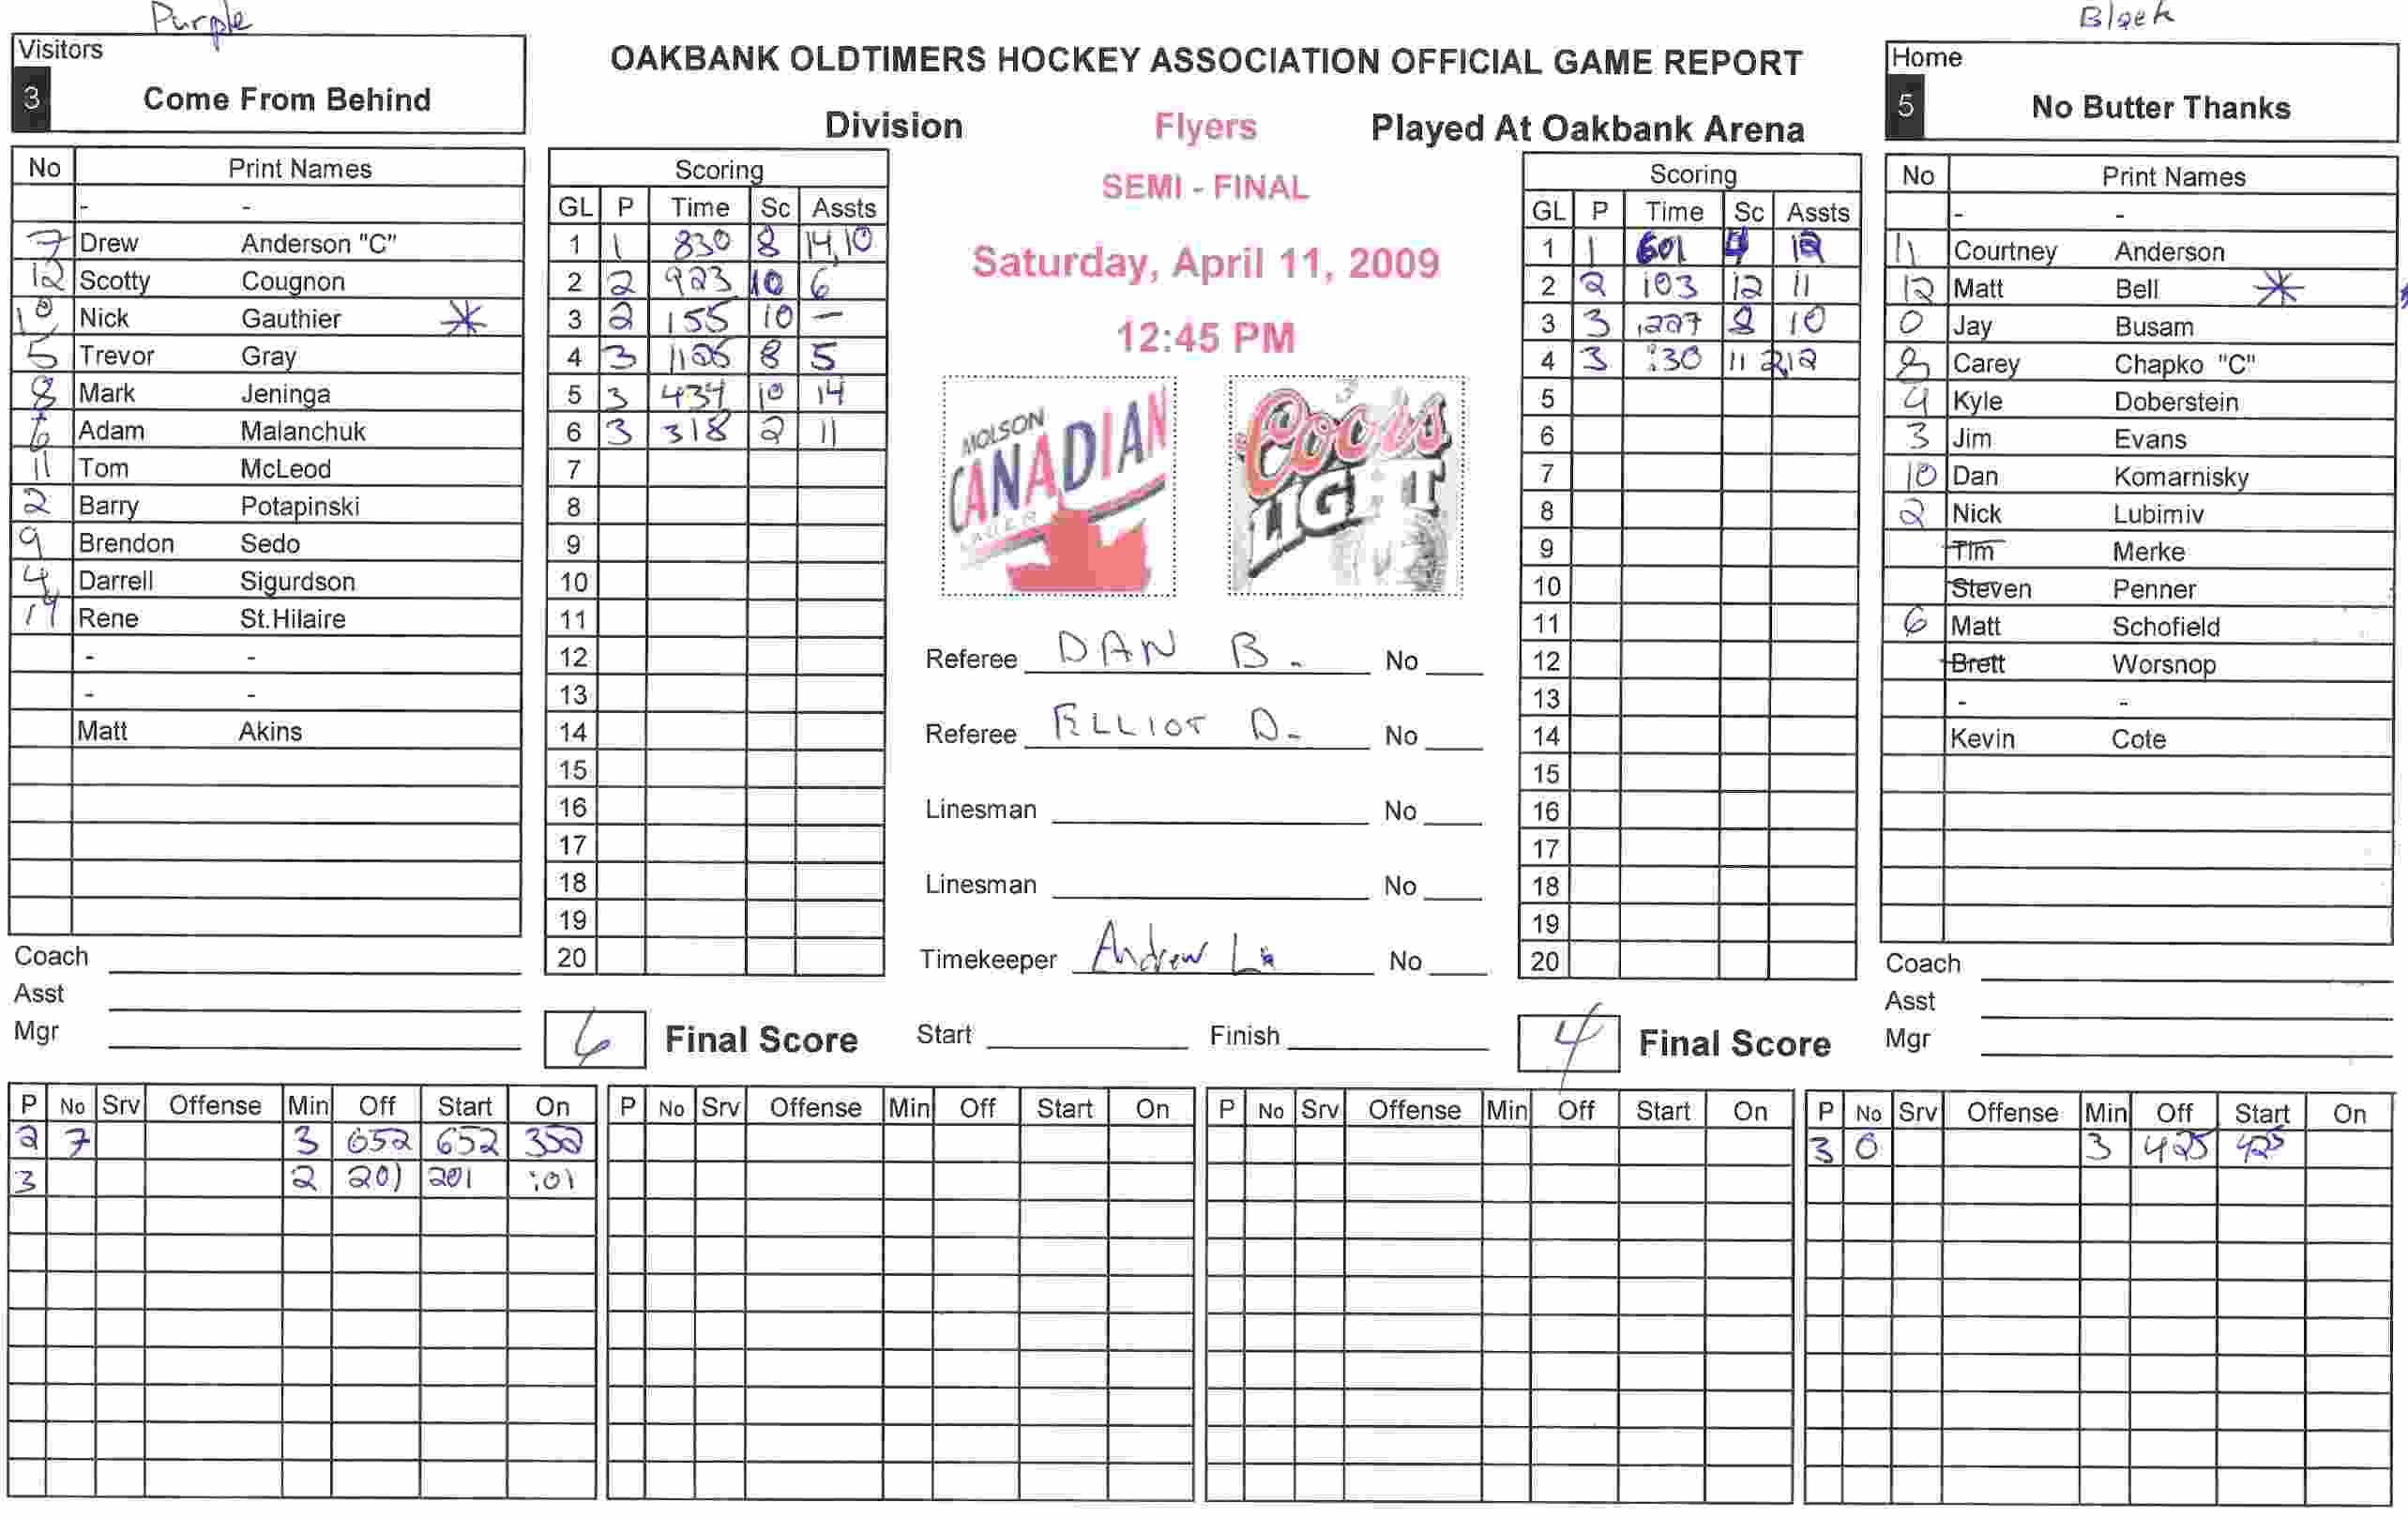 Purple
Black
Visitors
3 Come From Behind
OAKBANK OLDTIMERS HOCKEY ASSOCIATION OFFICIAL GAME REPORT
Division Flyers Played At Oakbank Arena
SEMI - FINAL
Saturday, April 11, 2009
12:45 PM
Home
5 No Butter Thanks
No Print Names
- -
7 Drew Anderson "C"
12 Scotty Cougnon
10 Nick Gauthier *
5 Trevor Gray
8 Mark Jeninga
6 Adam Malanchuk
11 Tom McLeod
2 Barry Potapinski
9 Brendon Sedo
4 Darrell Sigurdson
14 Rene St.Hilaire
- -
- -
Matt Akins
Coach
Asst
Mgr
Scoring
GL P Time Sc Assts
1 1 830 8 14,10
2 2 923 10 6
3 2 155 10 —
4 3 1126 8 5
5 3 434 10 14
6 3 318 2 11
7
8
9
10
11
12
13
14
15
16
17
18
19
20
6 Final Score
MOLSON
CANADIAN
LAGER
Coors
LIGHT
Referee DAN B. No
Referee ELLIOT D. No
Linesman No
Linesman No
Timekeeper Andrew No
Start Finish
Scoring
GL P Time Sc Assts
1 1 601 4 12
2 2 103 12 11
3 3 1227 8 10
4 3 :30 11 2,12
5
6
7
8
9
10
11
12
13
14
15
16
17
18
19
20
4 Final Score
No Print Names
- -
11 Courtney Anderson
12 Matt Bell *
0 Jay Busam
8 Carey Chapko "C"
4 Kyle Doberstein
3 Jim Evans
10 Dan Komarnisky
2 Nick Lubimiv
Tim Merke
Steven Penner
6 Matt Schofield
Brett Worsnop
- -
Kevin Cote
Coach
Asst
Mgr
P No Srv Offense Min Off Start On
2 7 3 652 652 352
3 2 201 201 :01
P No Srv Offense Min Off Start On
P No Srv Offense Min Off Start On
P No Srv Offense Min Off Start On
3 0 3 425 425